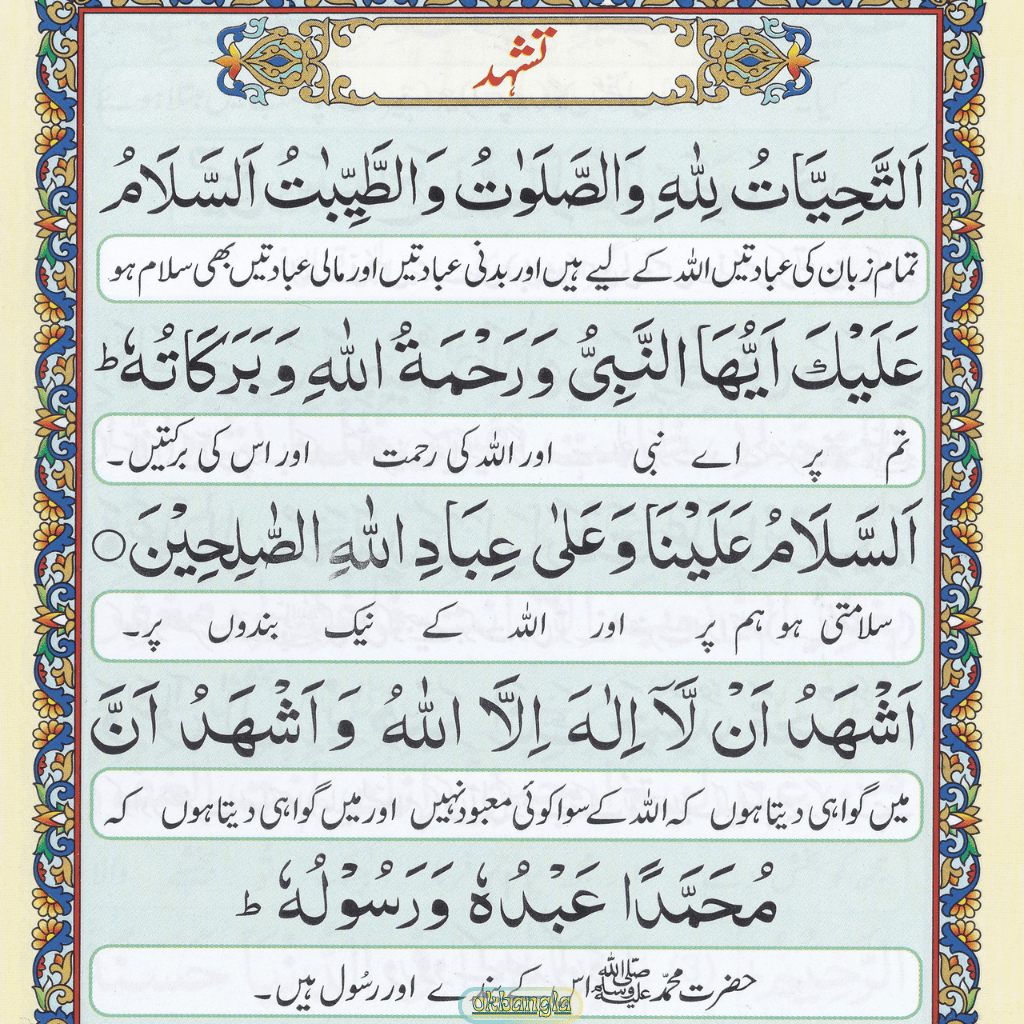 تشہد
اَلتَّحِيَّاتُ لِلّٰهِ وَالصَّلَوٰتُ وَالطَّيِّبٰتُ اَلسَّلَامُ
تمام زبان کی عبادتیں اللہ کے لیے ہیں اور بدنی عبادتیں اور مالی عبادتیں بھی سلام ہو
عَلَيْكَ اَيُّهَا النَّبِىُّ وَرَحْمَةُ اللّٰهِ وَبَرَكَاتُهٗ ؕ
تم پر اے نبی اور اللہ کی رحمت اور اس کی برکتیں۔
اَلسَّلَامُ عَلَيْنَا وَعَلٰى عِبَادِ اللّٰهِ الصّٰلِحِيْنَ ○
سلامتی ہو ہم پر اور اللہ کے نیک بندوں پر۔
اَشْهَدُ اَنْ لَّآ اِلٰهَ اِلَّا اللّٰهُ وَاَشْهَدُ اَنَّ
میں گواہی دیتا ہوں کہ اللہ کے سوا کوئی معبود نہیں اور میں گواہی دیتا ہوں کہ
مُحَمَّدًا عَبْدُهٗ وَرَسُوْلُهٗ ؕ
حضرت محمّد صلی اللہ علیہ وسلم اس کے بندے اور رسُول ہیں۔
okbangla